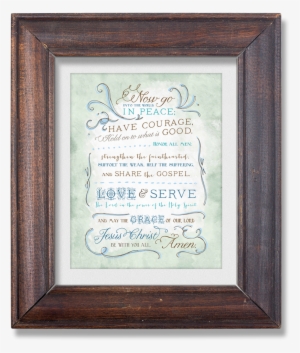 Now go
into the world
IN PEACE:
HAVE COURAGE,
Hold on to what is GOOD.
HONOR ALL MEN,
strengthen the fainthearted,
SUPPORT THE WEAK, HELP THE SUFFERING,
AND SHARE THE GOSPEL.
LOVE & SERVE
the Lord in the power of the Holy Spirit
AND MAY THE GRACE OF OUR LORD
Jesus Christ
BE WITH YOU ALL. Amen.